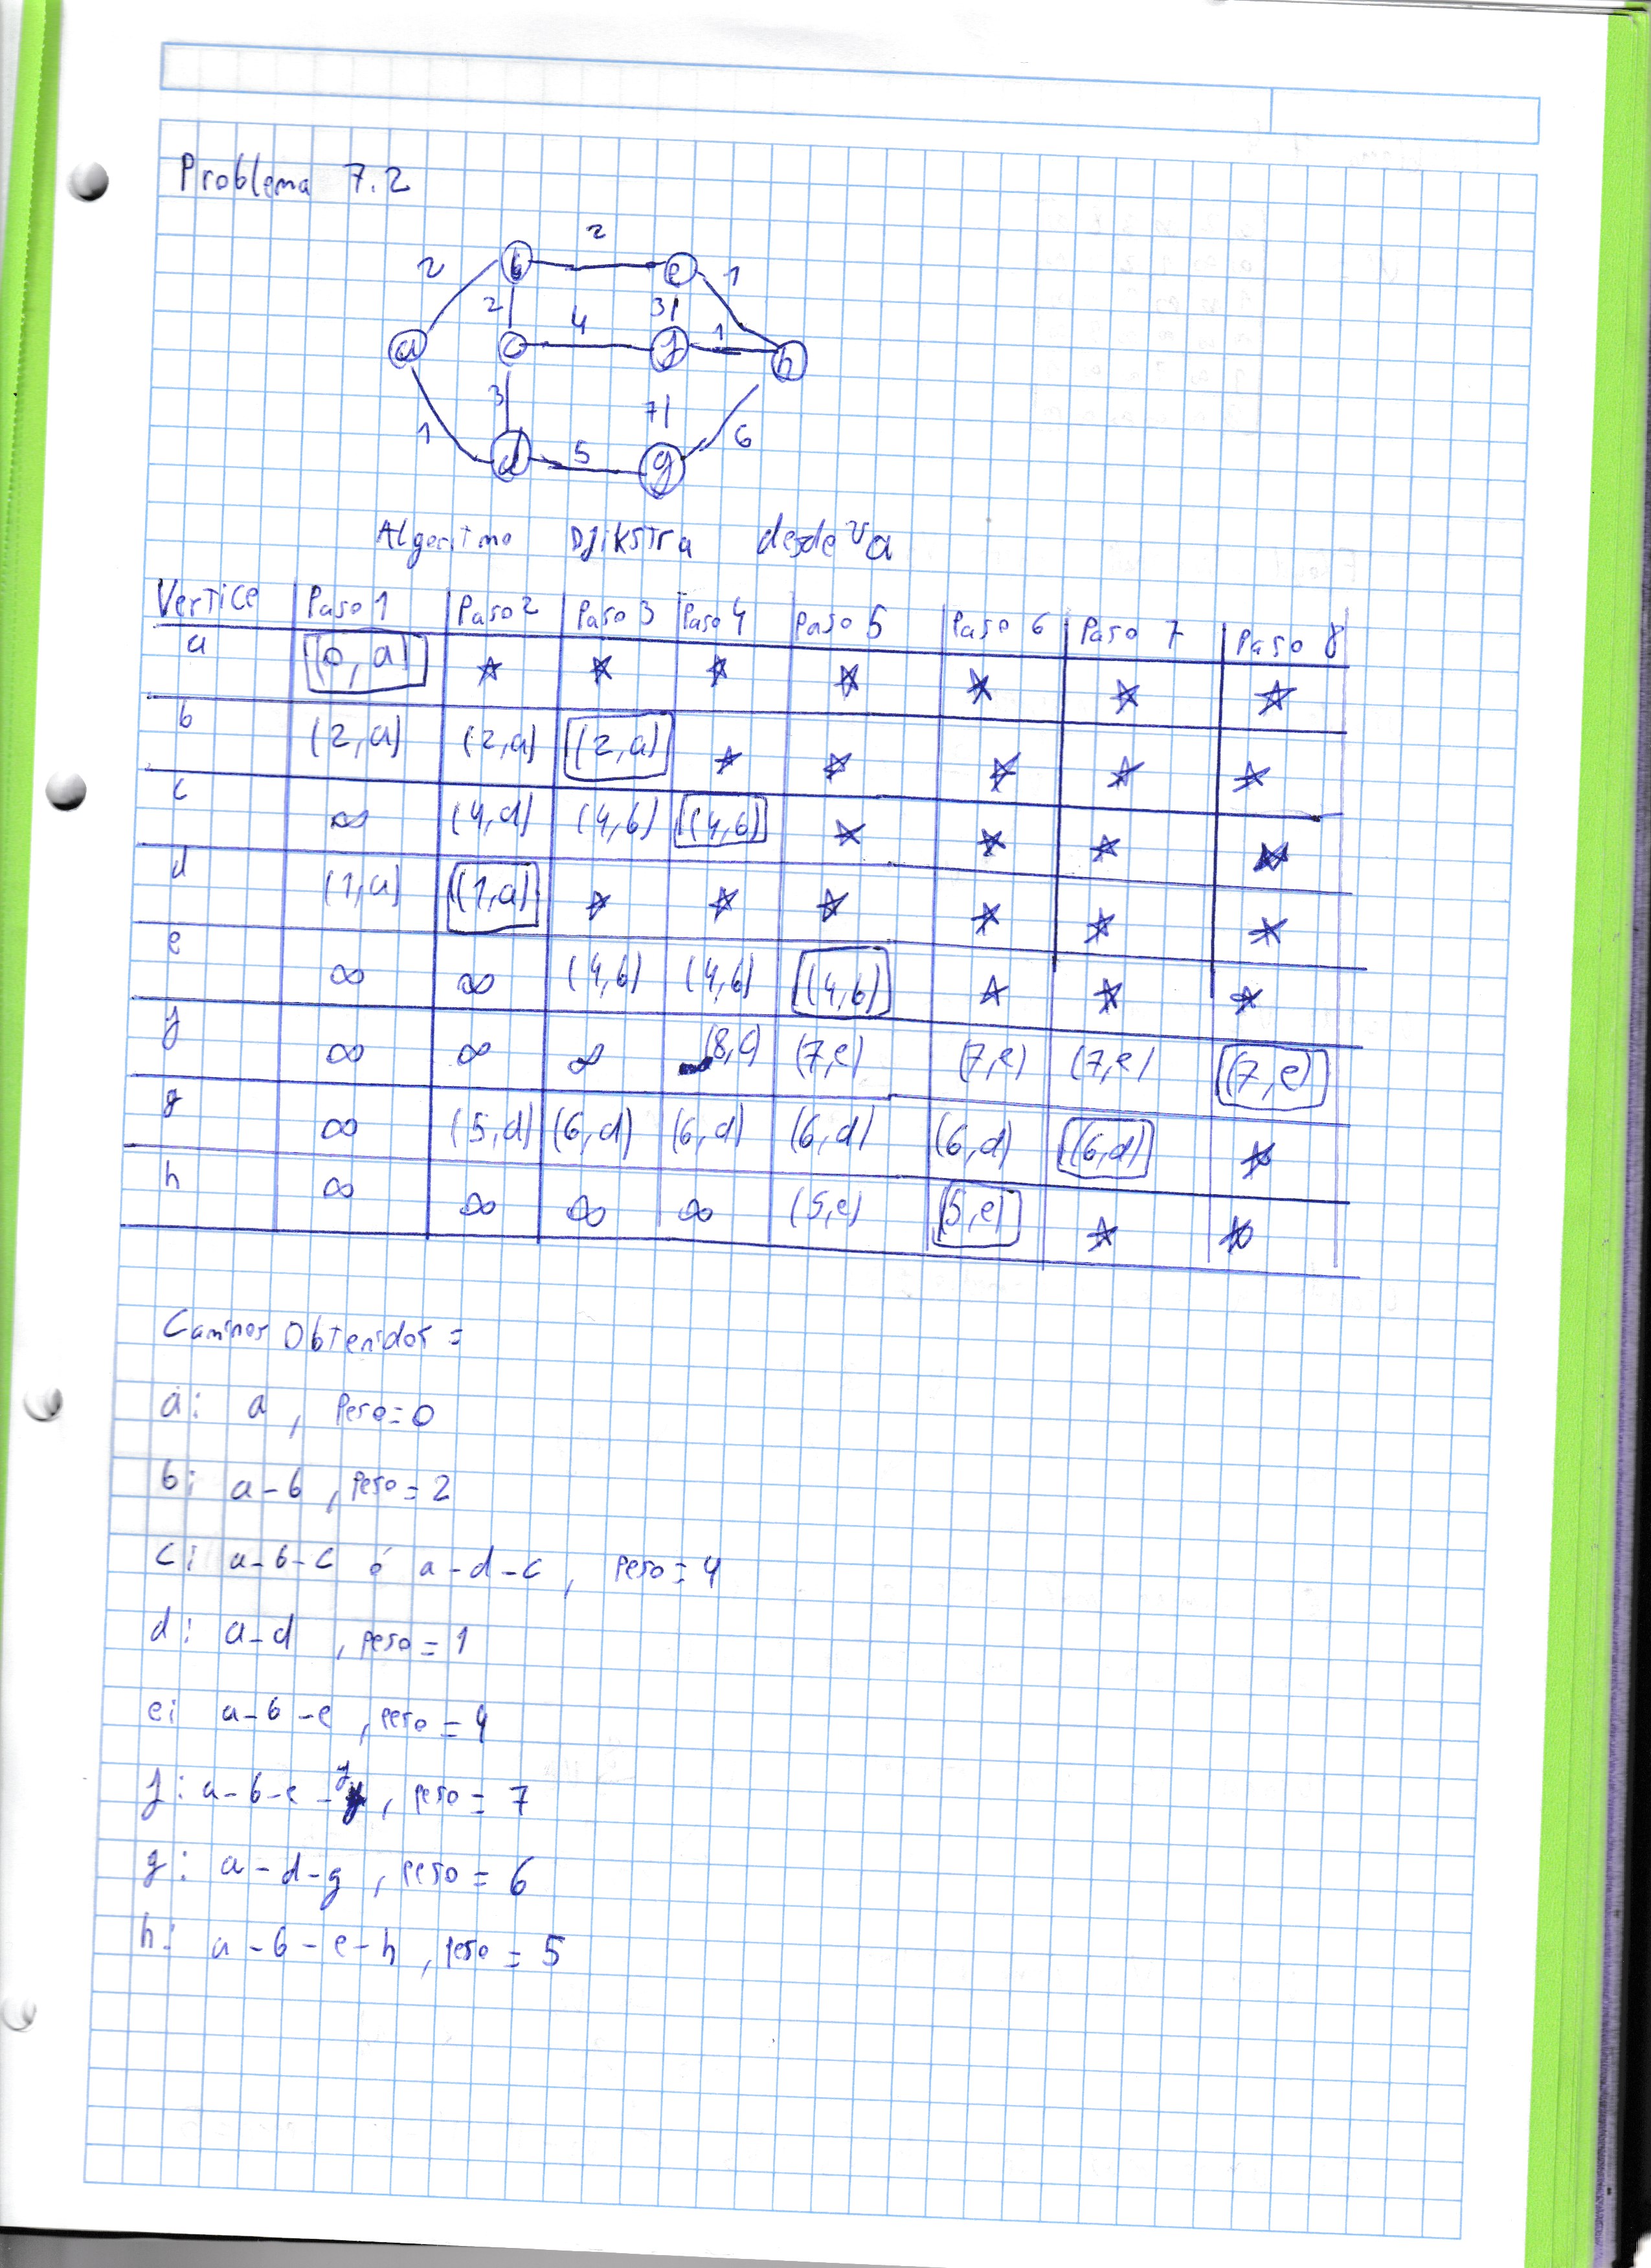 Problema 7.2
2
2 b e 1
2 4 3 1
a c f h
3 7
1 5 6
d g
Algoritmo Djikstra desde va
Vertice Paso 1 Paso 2 Paso 3 Paso 4 Paso 5 Paso 6 Paso 7 Paso 8
a (0,a) * * * * * * *
b (2,a) (2,a) (2,a) * * * * *
c ∞ (4,d) (4,b) (4,b) * * * *
d (1,a) (1,a) * * * * * *
e ∞ ∞ (4,b) (4,b) (4,b) * * *
f ∞ ∞ ∞ (8,c) (7,e) (7,e) (7,e) (7,e)
g ∞ (5,d) (6,d) (6,d) (6,d) (6,d) (6,d) *
h ∞ ∞ ∞ ∞ (5,e) (5,e) * *
Caminos Obtenidos =
a: a, Peso=0
b: a-b, peso=2
c: a-b-c ó a-d-c, peso=4
d: a-d, peso=1
e: a-b-e, peso=4
f: a-b-e-f, peso=7
g: a-d-g, peso=6
h: a-b-e-h, peso=5